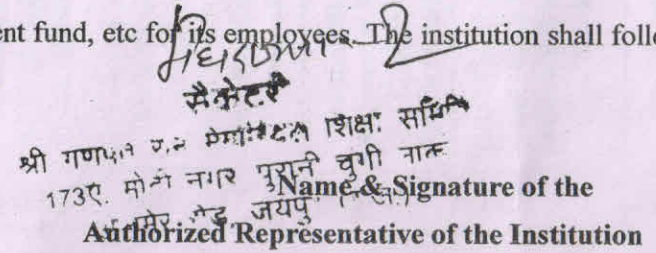 ent fund, etc for its employees. The institution shall follo
सैक्रेटरी
श्री शिक्षा समिति
173ए. मोती नगर पुरानी चुंगी नाका
रोड़ जयपुर
Name & Signature of the
Authorized Representative of the Institution